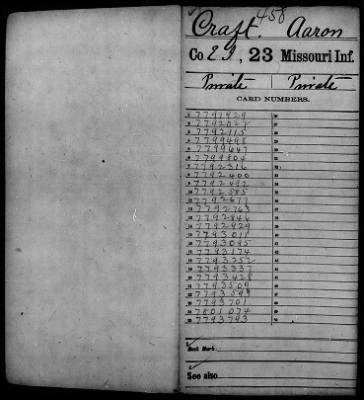 458
Craft. Aaron
Co E I, 23 Missouri Inf.
Private Private
CARD NUMBERS.
7791929
7792027
7792115
7799498
7799647
7799804
7792316
7792400
7792492
7792585
7792677
7792763
7792846
7792929
7793011
7793095
7793174
7793252
7793337
7793428
7793509
7793594
7793701
7801074
7793793
Book Mark:
See also